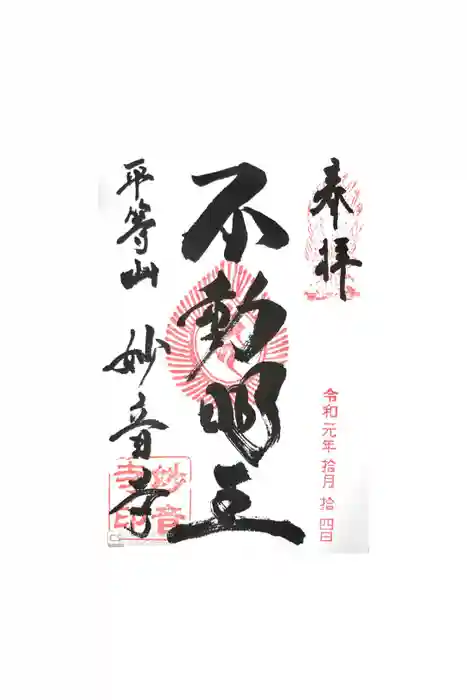 奉拝
令和元年 拾月 拾四日
不動明王
平等山 妙音寺
妙音
寺印